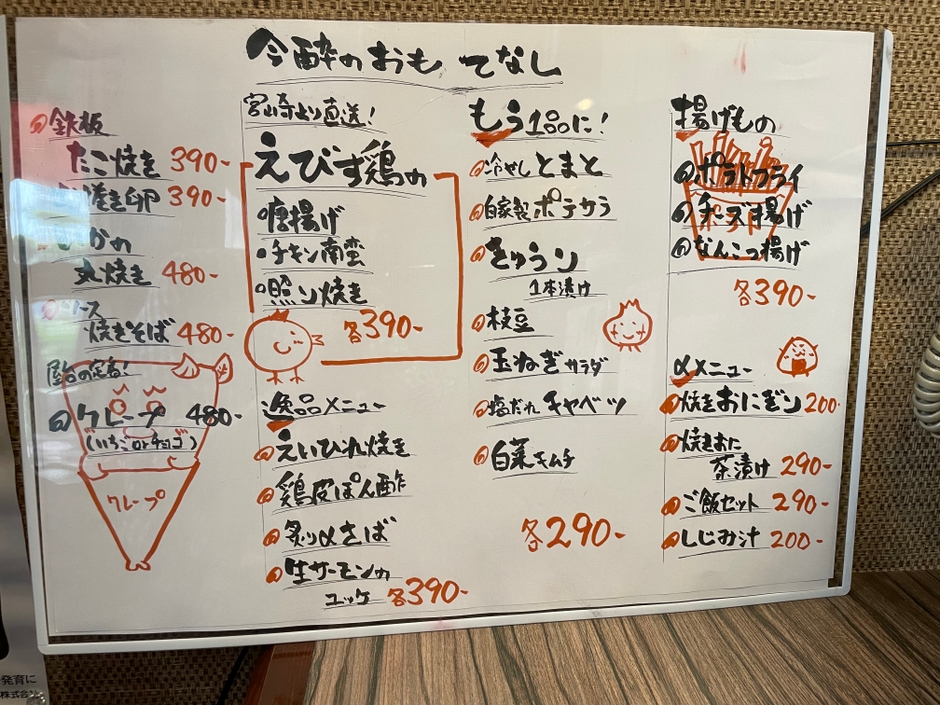 今酔のおもてなし
鉄板
たこ焼き 390-
巻き卵 390-
いかの
丸焼き 480-
ソース
焼きそば 480-
屋台の定番!
クレープ 480-
(いちごorチョコ)
クレープ
宮崎より直送!
えびす鶏の
唐揚げ
チキン南蛮
照り焼き
各390-
逸品メニュー
えいひれ焼き
鶏皮ぽん酢
炙り〆さば
生サーモンの
ユッケ 各390-
もう1品に!
冷やしとまと
自家製ポテサラ
きゅうり
1本漬け
枝豆
玉ねぎサラダ
塩だれキャベツ
白菜キムチ
各290-
揚げもの
ポテトフライ
チーズ揚げ
なんこつ揚げ
各390-
〆メニュー
焼きおにぎり 200-
焼きおに
茶漬け 290-
ご飯セット 290-
しじみ汁 200-
発育に
株式会社